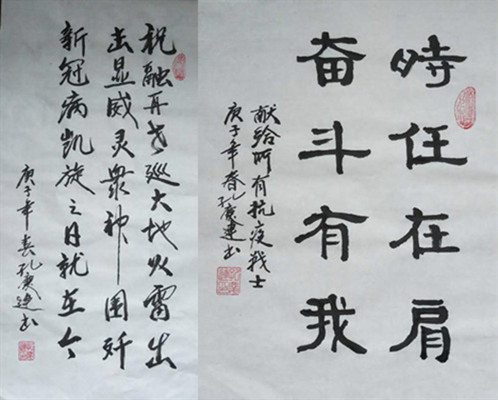 祝融再世巡大地火雷出
击显威灵眾神围歼
新冠病凯旋之日就在今
庚子年春孔书
時任在肩
奋斗有我
献给所有抗疫战士
庚子年春孔书